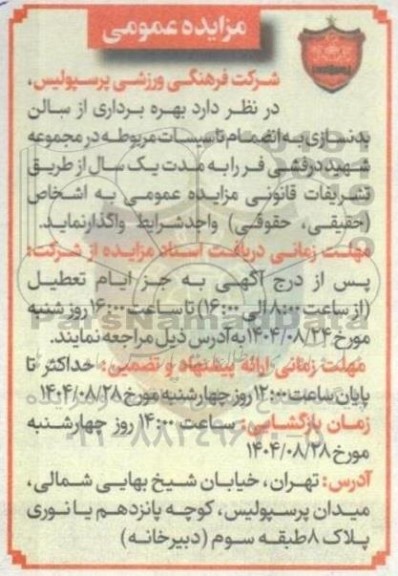 مزایده عمومی
شرکت فرهنگی ورزشی پرسپولیس،
در نظر دارد بهره برداری از سالن
بدنسازی به انضمام تاسیسات مربوطه در مجموعه
شهید درفشی فر را به مدت یک سال از طریق
تشریفات قانونی مزایده عمومی به اشخاص
(حقیقی، حقوقی) واجد شرایط واگذار نماید.
مهلت زمانی دریافت اسناد مزایده از شرکت:
پس از درج آگهی به جز ایام تعطیل
(از ساعت ۸:۰۰ الی ۱۶:۰۰) تا ساعت ۱۶:۰۰ روز شنبه
مورخ ۱۴۰۴/۰۸/۲۴ به آدرس ذیل مراجعه نمایند.
مهلت زمانی ارائه پیشنهاد و تضمین: حداکثر تا
پایان ساعت ۱۲:۰۰ روز چهارشنبه مورخ ۱۴۰۴/۰۸/۲۸
زمان بازگشایی: ساعت ۱۴:۰۰ روز چهارشنبه
مورخ ۱۴۰۴/۰۸/۲۸
آدرس: تهران، خیابان شیخ بهایی شمالی،
میدان پرسپولیس، کوچه پانزدهم یا نوری
پلاک ۸ طبقه سوم (دبیرخانه)
ParsNamadData